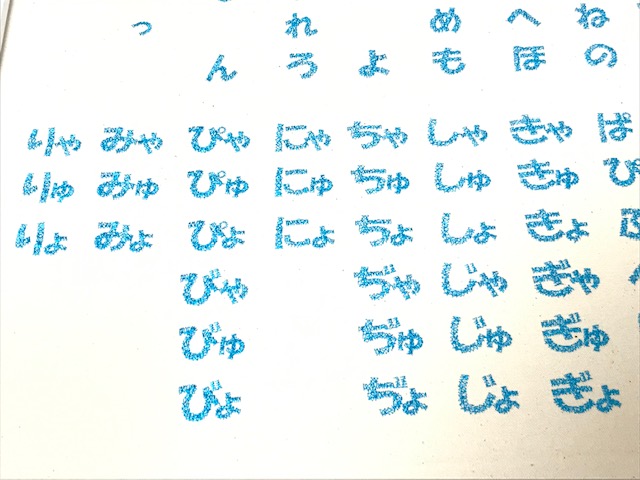 ねの
へほ
めも
よ
れろ
ん
っ
ぱぴ
きゃきゅきょぎゃぎゅぎょ
しゃしゅしょじゃじゅじょ
ちゃちゅちょぢゃぢゅぢょ
にゃにゅにょ
ぴゃぴゅぴょびゃびゅびょ
みゃみゅみょ
りゃりゅりょ